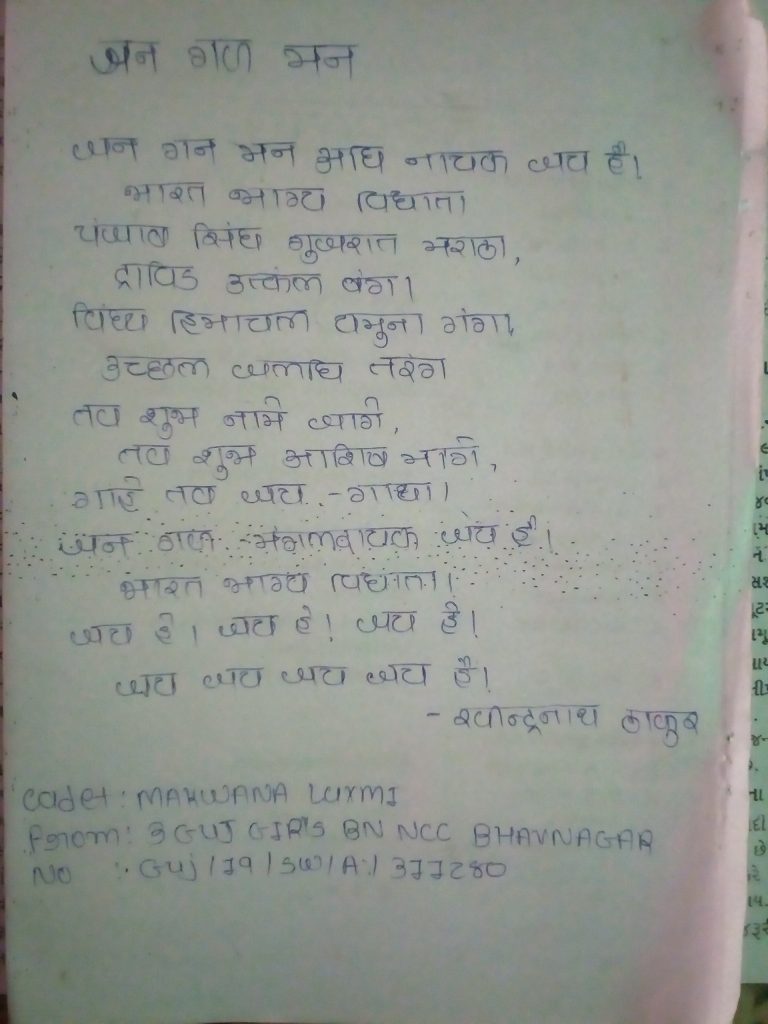 जन गण मन
जन गन मन अधि नायक जय है।
भारत भाग्य विधाता।
पंजाब सिंध गुजरात मराठा,
द्राविड उत्कल बंग।
विंध्य हिमाचल यमुना गंगा,
उच्छल जलधि तरंग
तव शुभ नामे जागे,
तव शुभ आशिष मागे,
गाहे तव जय - गाथा।
जन गण -मंगलदायक जय है।
भारत भाग्य विधाता।
जय है। जय हे। जय है।
जय जय जय जय है।
- रवीन्द्रनाथ ठाकुर
Cadet: MAKWANA LUXMI
From: 3 GUJ GIR'S BN NCC BHAVNAGAR
No :- Guj/19/SW/A/377280